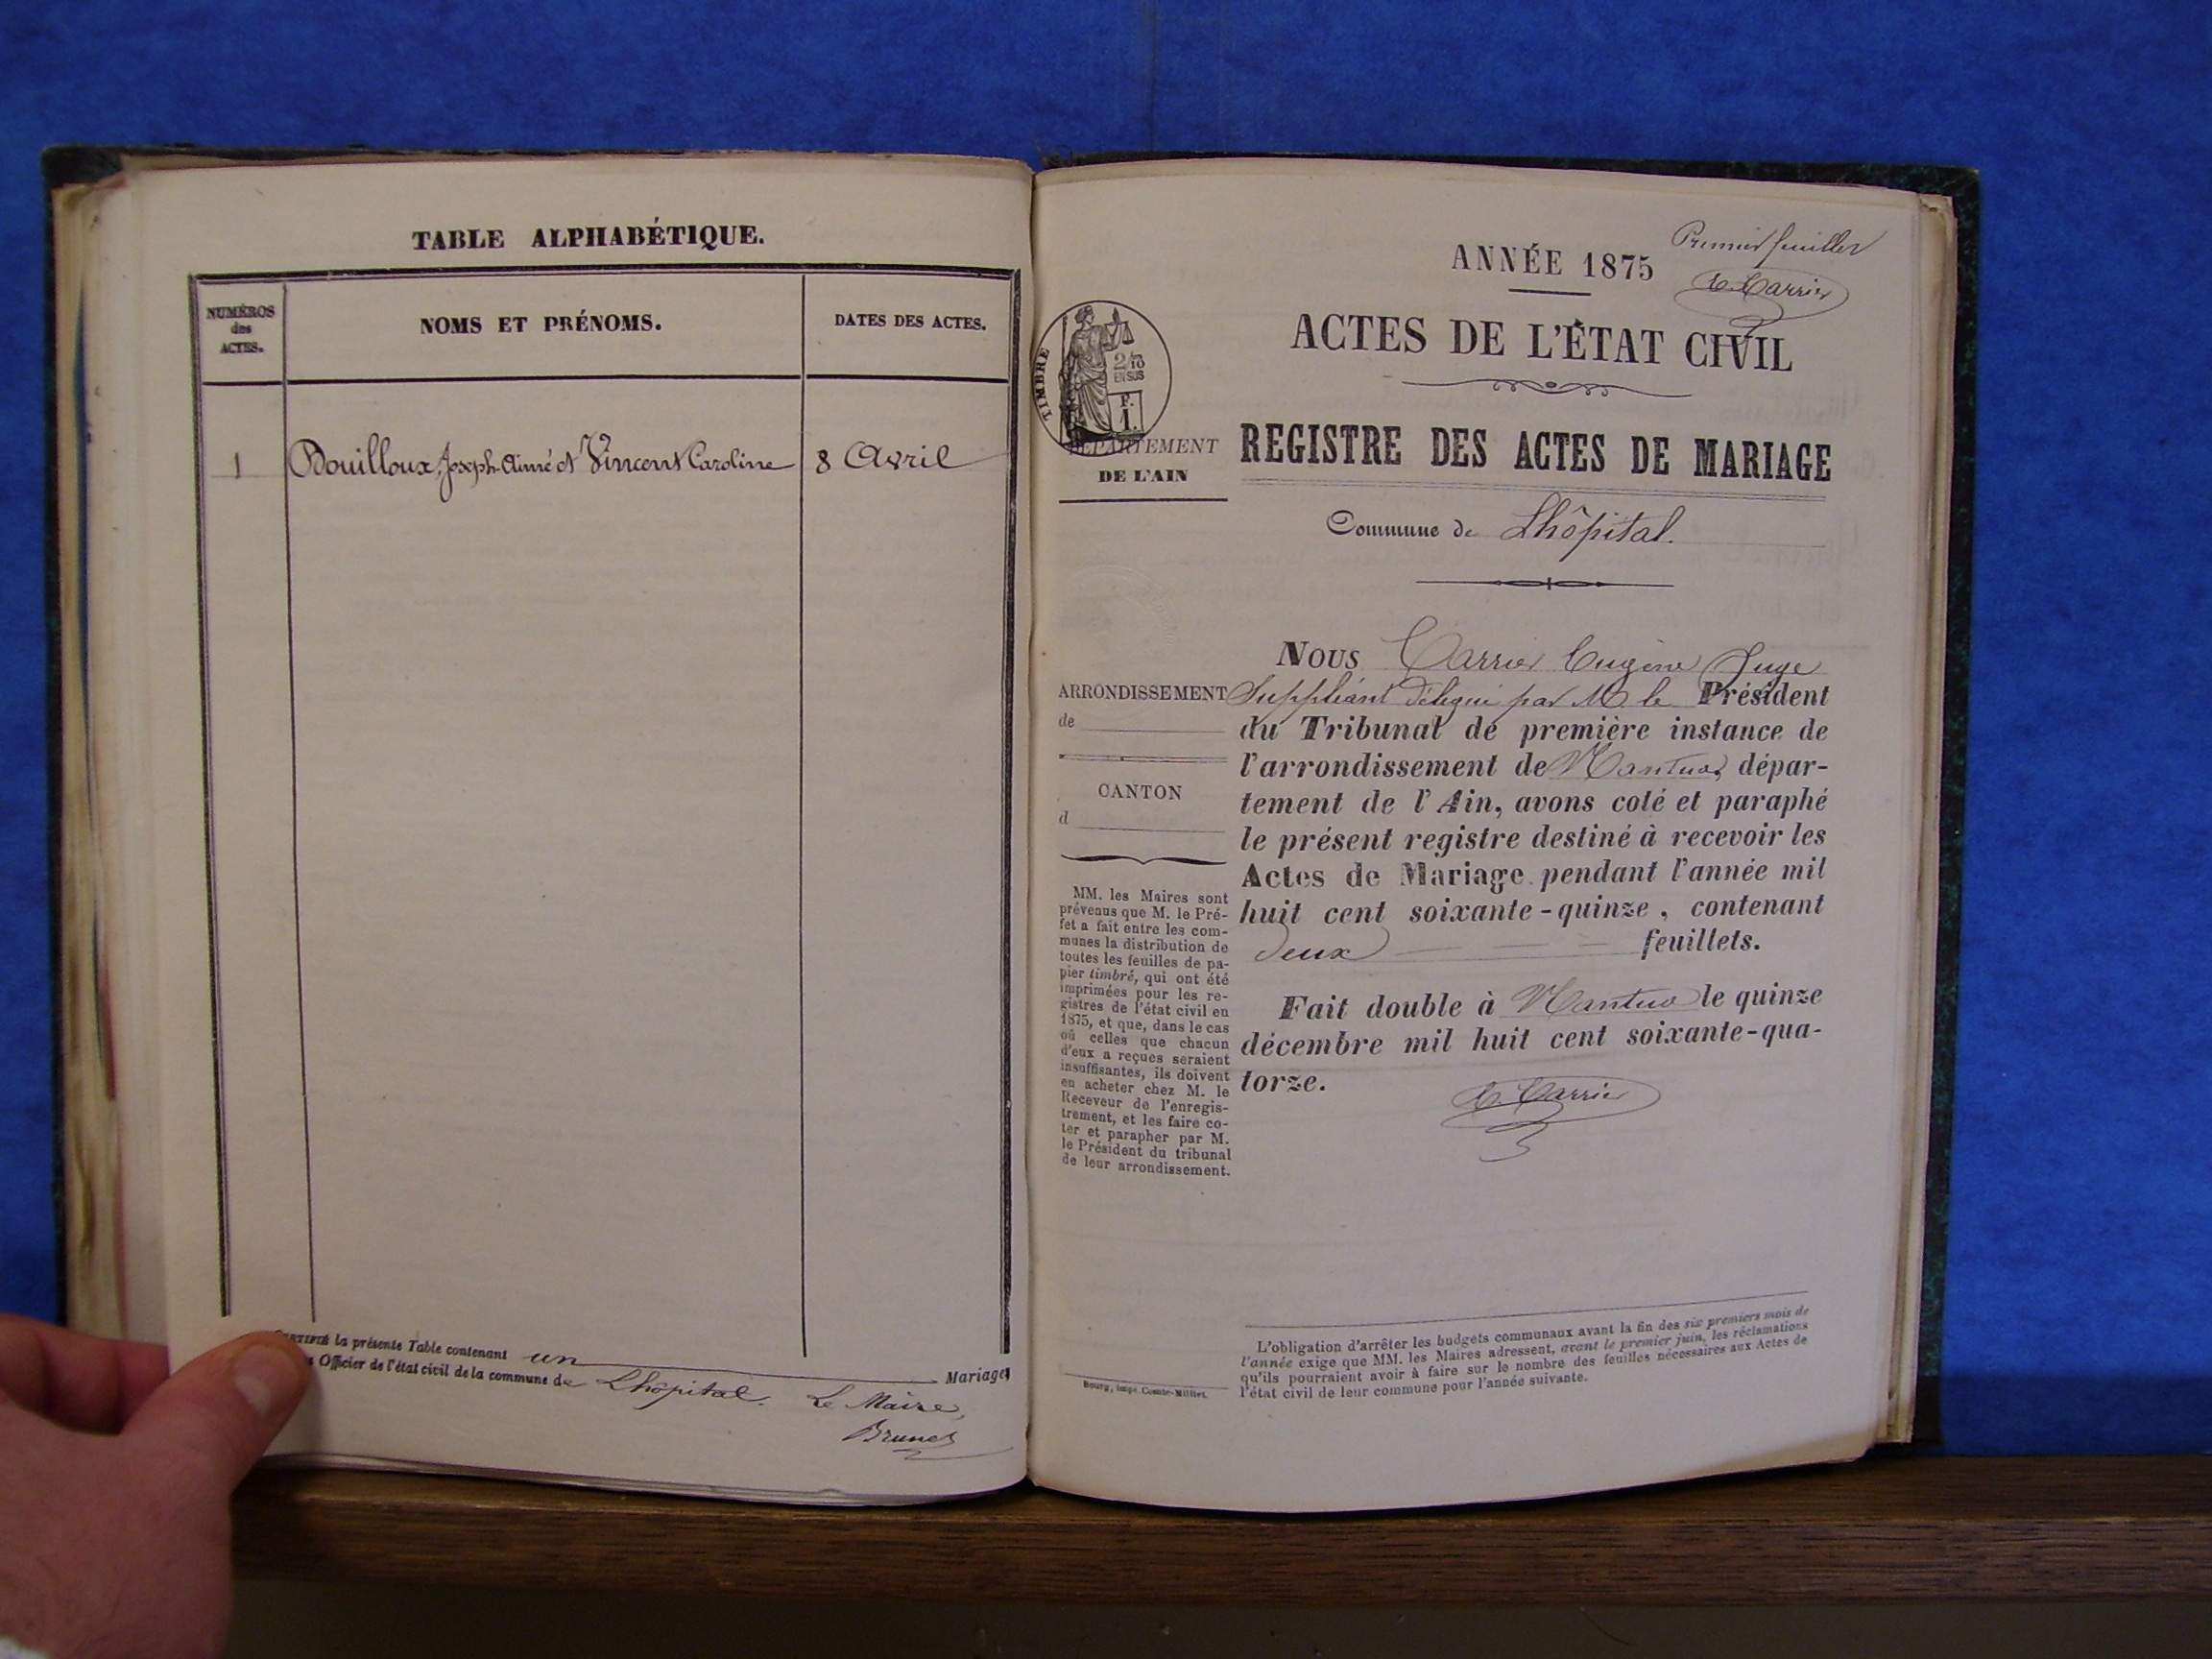 TABLE ALPHABÉTIQUE.
NUMÉROS
des
ACTES.
NOMS ET PRÉNOMS.
DATES DES ACTES.
1 Douilloux, Joseph-Aimé et Vincent Caroline 8 Avril
la présente Table contenant un Mariages
Officier de l'état civil de la commune de Lhôpital. Le Maire,
Brunet
Premier feuillet
E. Carrier
ANNÉE 1875
ACTES DE L'ÉTAT CIVIL
TIMBRE
2/10
EN SUS
F.
1.
DÉPARTEMENT
DE L'AIN
REGISTRE DES ACTES DE MARIAGE
Commune de Lhôpital.
ARRONDISSEMENT
de
CANTON
d
MM. les Maires sont
prévenus que M. le Pré-
fet a fait entre les com-
munes la distribution de
toutes les feuilles de pa-
pier timbré, qui ont été
imprimées pour les re-
gistres de l'état civil en
1875, et que, dans le cas
où celles que chacun
d'eux a reçues seraient
insuffisantes, ils doivent
en acheter chez M. le
Receveur de l'enregis-
trement, et les faire co-
ter et parapher par M.
le Président du tribunal
de leur arrondissement.
Nous Carrier Eugène Juge
Suppléant délégué par M. le Président
du Tribunal de première instance de
l'arrondissement de Nantua, dépar-
tement de l'Ain, avons coté et paraphé
le présent registre destiné à recevoir les
Actes de Mariage pendant l'année mil
huit cent soixante-quinze, contenant
deux feuillets.
Fait double à Nantua le quinze
décembre mil huit cent soixante-qua-
torze.
E. Carrier
L'obligation d'arrêter les budgets communaux avant la fin des six premiers mois de
l'année exige que MM. les Maires adressent, avant le premier juin, les réclamations
qu'ils pourraient avoir à faire sur le nombre des feuilles nécessaires aux Actes de
l'état civil de leur commune pour l'année suivante.
Bourg, imp. Comte-Milliet.